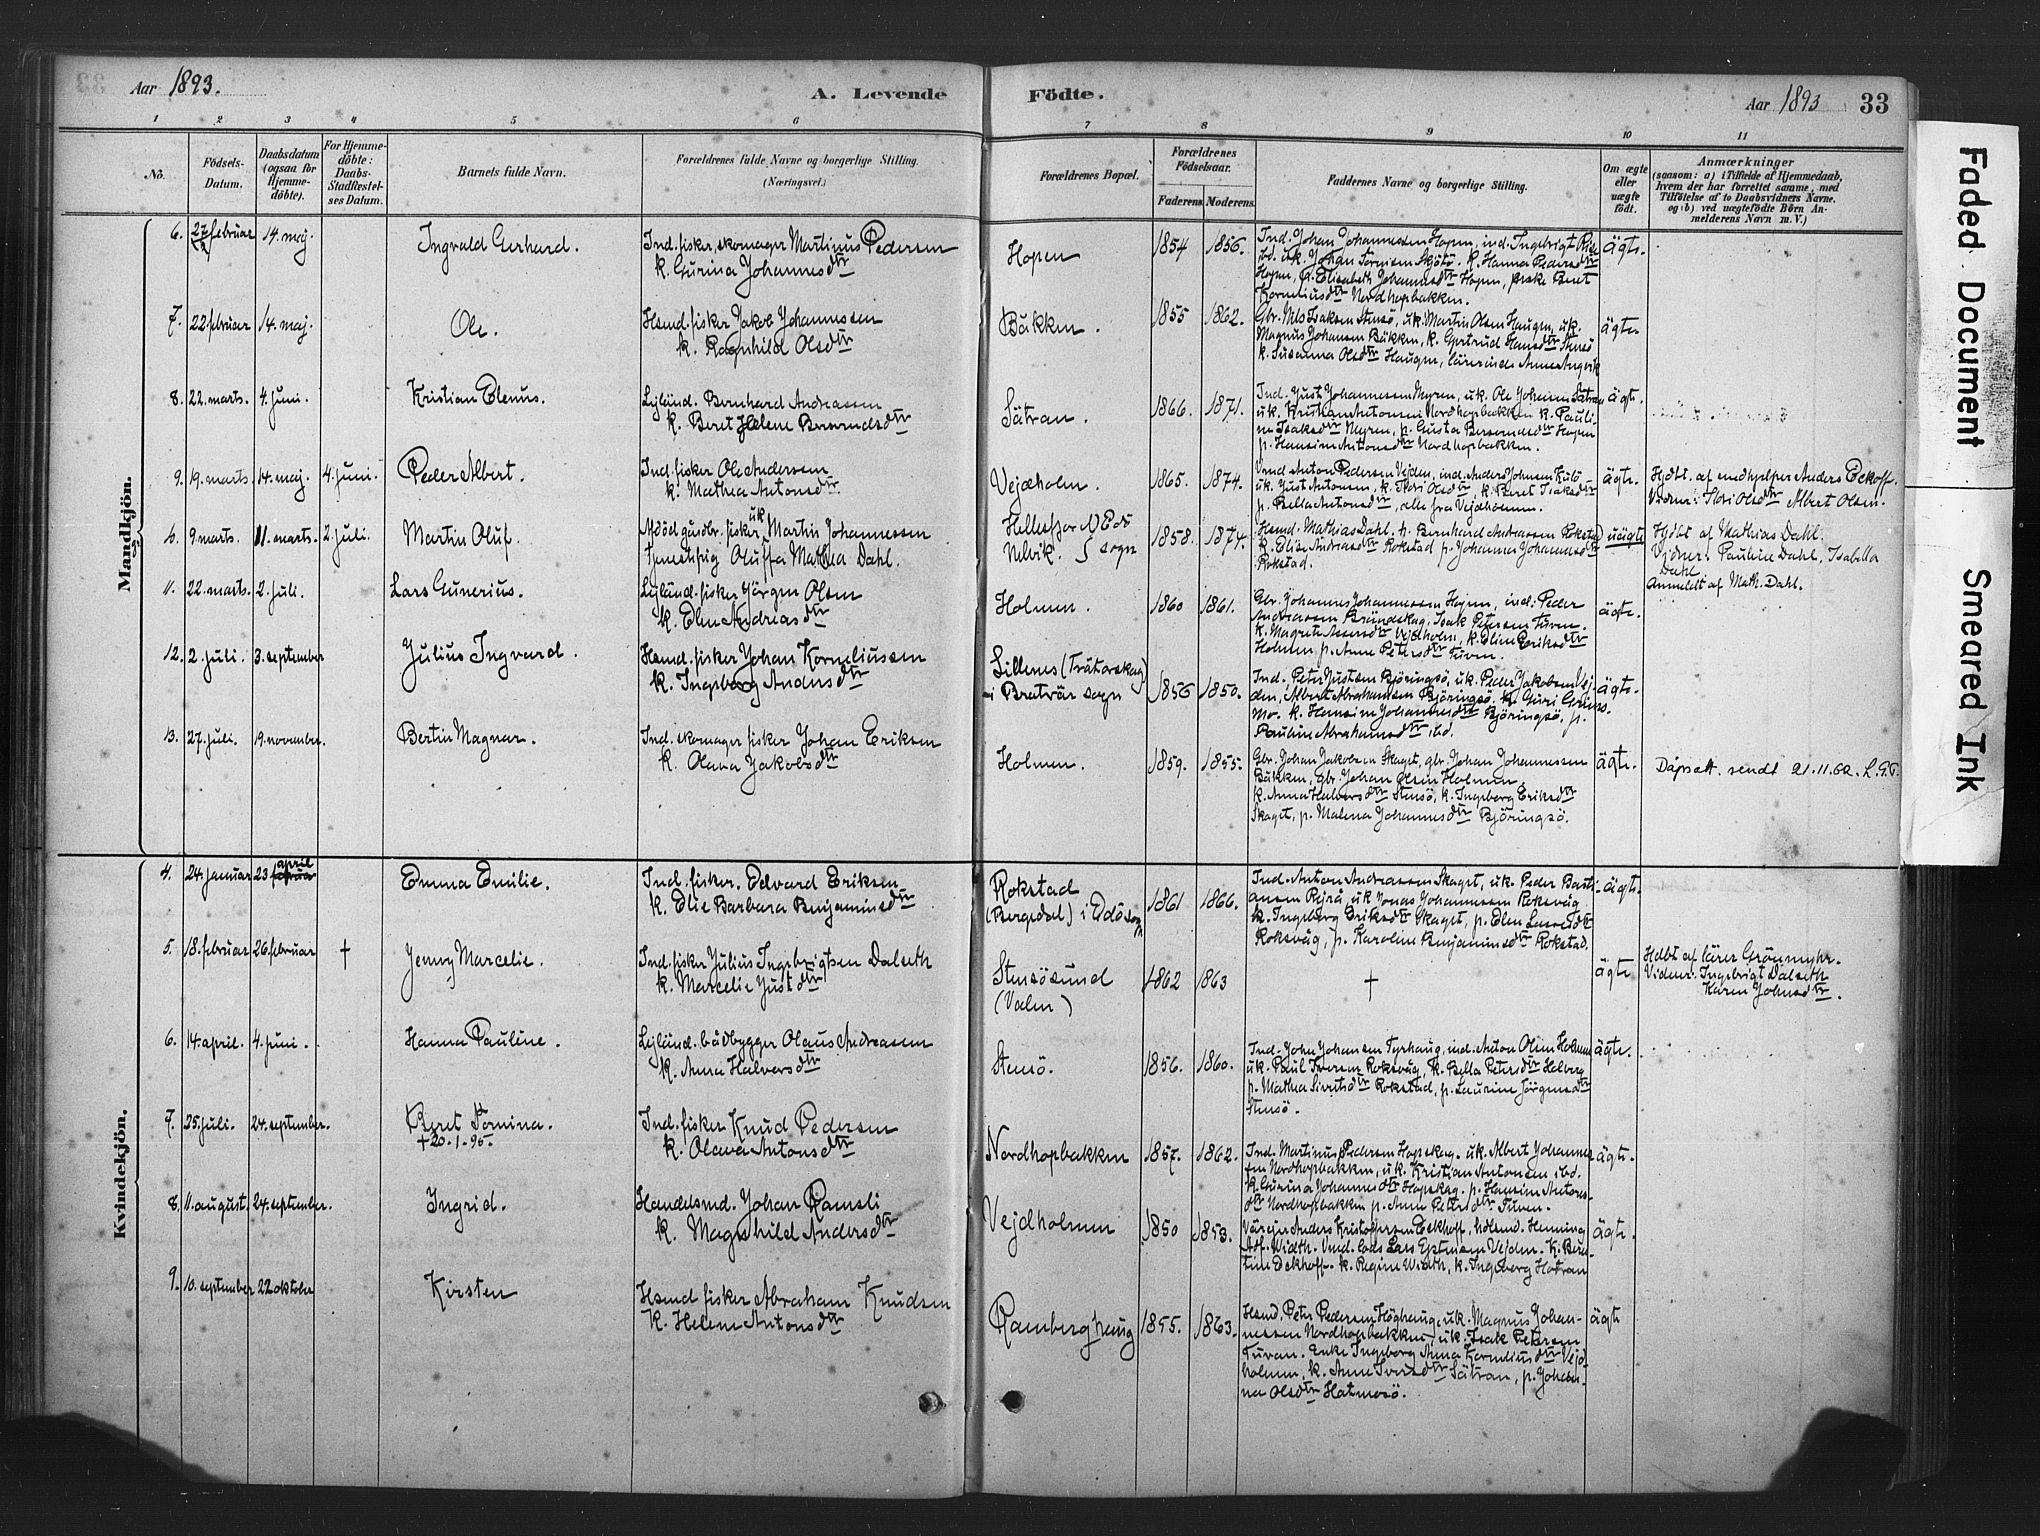 Aar 1893.
A. Levende Födte.
Aar 1893
33
1 2 3 4 5 6 7 8 9 10 11
No.
Födsels-Datum.
Daabsdatum (ogsaa for Hjemme-döbte).
For Hjemme-döbte: Daabs-Stadfæstel-ses Datum.
Barnets fulde Navn.
Forældrenes fulde Navne og borgerlige Stilling.
(Næringsvei.)
Forældrenes Bopæl.
Forældrenes Födselsaar.
Faderens
Moderens
Faddernes Navne og borgerlige Stilling.
Om ægte eller uægte födt.
Anmærkninger
(saasom: a) i Tilfælde af Hjemmedaab,
hvem der har forrettet samme, med
Tilföielse af to Daabsvidners Navne.
og b) ved uægtefödte Börn An-
melderens Navn m. V.)
Mandkjön.
6. 27 februar 14. maj. Ingvald Gerhard. Ind. fisker, skomager Martinus Pedersen
k. Gurina Johannesdtr
Hopen 1854 1856. Ind. Johan Johannessen Hopen, ind. Ingebrigt
k. Hanna Pedersdtr
Hopen, p. Elisabeth Johannesdtr Hopen, Beret
Korneliusdtr Nordhopbakken.
ägte.
7. 22. februar 14. maj. Ole. Hsmd. fisker Jakob Johannessen
k. Ragnhild Olsdtr
Bäkken. 1855 1862. Gbr. Nils Isaksen Stensö, uk. Martin Olsen Haugen, uk.
Magnus Johansen Bäkken, k. Gertrud Hansdtr Stensö
k. Susanna Olsdtr Haugen, lärerinde Anne Angvik
ägte.
8. 22. marts. 4. juni. Kristian Elenus. Lejländ. Bernhard Andreassen
k. Beret Helene
Sätran. 1866. 1871. Ind. Just Johannessen Myren, uk. Ole Johansen Sätran
uk. Kristian Antonsen Nordhopbakken k. Pauli-
ne Isaksdtr Myren, p. Gusta Hopen
p. Hansine Antonsdtr Nordhopbakken.
ägte.
9. 19. marts. 14. maj. 4. juni. Peder Albert. Ind. fisker Ole Andersen
k. Mathea Antonsdtr
Vejdholm. 1865. 1874. Anton Pedersen Vejden, ind. Anders Johnsen
uk. Just Antonsen, k. Olsdtr, k. Beret Isaksdtr
p. Bella Antonsdtr, alle fra Vejdholmen.
ägte. Hjdbt. af medhjelper Anders Eekhoff.
Vidner: Olsdtr Albert Olsen.
9. marts. 11. marts. 2. juli. Martin Oluf. fisker uk Martin Johannessen
Oluffa Mathea Dahl.
Edö
sogn 1858. 1874. Hsmd. Mathias Dahl, p. Bernhard Andreassen Rokstad
k. Elise Andreasdtr Rokstad p. Johanna Johannesdtr
Rokstad.
uägte Hjdbt af Mathias Dahl.
Vidner: Pauline Dahl, Isabella
Dahl
Anmeldt af Math. Dahl.
11. 22. marts. 2. juli. Lars Gunerius. Lejländ. fisker Jörgen Olsen
k. Elen Andreasdtr
Holmen. 1860 1861. Gbr. Johannes Johannessen Hopen, ind. Peder
Andreassen Isak Petersen Tuven.
k. Magrete Vejdholm, k. Eline Eriksdtr
Holmen p. Anne Petersdtr Tuven.
ägte.
12. 2. juli. 3. september Julius Ingvard. Hsmd. fisker Johan Korneliussen
k. Ingeborg Andersdtr
Lillenes (Trätorskag)
i Bratvär sogn 1856 1850. Ind. Peter Justsen Björingsö, uk. Peder Jakobsen Vej-
den, Albert Abrahamsen Björingsö. k. Guri
Mo. k. Hansine Johannesdtr Björingsö, p.
Pauline Abrahamsdtr ibd.
ägte.
13. 27. juli. 19. november. Bertin Magnar. Ind. skomager fisker Johan Eriksen
k. Olava Jakobsdtr
Holmen. 1859. 1855. Gbr. Johan Jakobsen Skaget, gbr Johan Johannessen
Bäkken, gbr. Johan Olsen Holman,
k. Anna Halversdtr Stensö, k. Ingeborg Eriksdtr
Skaget, p. Malena Johannesdtr Björingsö.
ägte. Dåpsatt. sendt 21.11.62.
Kvindekjön.
4. 24. januar 23 februar april Emma Emilie. Ind. fisker. Edvard Eriksen
k. Elie Barbara Benjaminsdtr
Rokstad
(Bergedal) i Edö sogn 1861 1866. Ind. Anton Andreassen Skaget, uk. Peder Basti-
ansen uk Jonas Johannessen Roksvåg
k. Ingeborg Eriksdtr Skaget, p. Elen
Roksvåg, p. Karoline Benjaminsdtr Rokstad.
ägte.
5. 18. februar 26. februar † Jenny Marcelie. Ind. fisker Julius Ingebrigtsen Dalseth
k. Marcelie Justdtr
Stensösund
(Valen) 1862 1863 † ägte Hdbt af lärer Grönmyhr.
Vidner: Ingebrigt Dalseth
Karen Johnsdtr.
6. 14. april. 4. juni. Hanna Pauline. Lejländ. båtbygger Olaus Andreassen
k. Anna Halversdtr
Stensö. 1856. 1860. Ind. John Johansen Tyrhaug, ind. Anton Olsen Holman
uk. Paul Iversen Roksvåg, k. Bella Petersdtr Helberg
p. Mathea Sivertsdtr Rokstad, p. Laurine Jörgensdtr
Stensö.
ägte.
7. 25. juli. 24. september. Beret Tomina.
†20-1-95.
Ind. fisker Knud Pedersen
k. Olava Antonsdtr
Nordhopbakken 1857. 1862. Ind. Martinus Pedersen Hopskag. uk. Albert Johannes-
sen Nordhopbakken, uk. Kristian Antonsen ibd.
k. Gurina Johannesdtr Hopskag. p. Hansine Antons-
dtr Nordhopbakken p. Anne Petersdtr Tuven.
ägte.
8. 11. august. 24. september. Ingrid. Handelsmd. Johan Ramsli
k. Magnhild Andersdtr
Vejdholmen 1850 1853. Anders Kristoffersen Eekhoff, Henning
Width. Lars Vejden. k.
Eekhoff. k. Regine Width, k. Ingeborg
ägte.
9. 10. september 22 oktober Kirsten Hsmd fisker Abraham Knudsen
k. Helene Antonsdtr
Ramberghaug 1855. 1863. Hsmd. Peter Pedersen Höghaug, uk. Magnus Johan-
nessen Nordhopbakken, uk. Isak Petersen
Tuvan. Enke Ingeborg Anna Korneliusdtr Vejd-
holmen, k. Anne Iversdtr Sätran, p. Johan-
na Olsdtr Hatmosö.
ägte
Faded Document
Smeared Ink